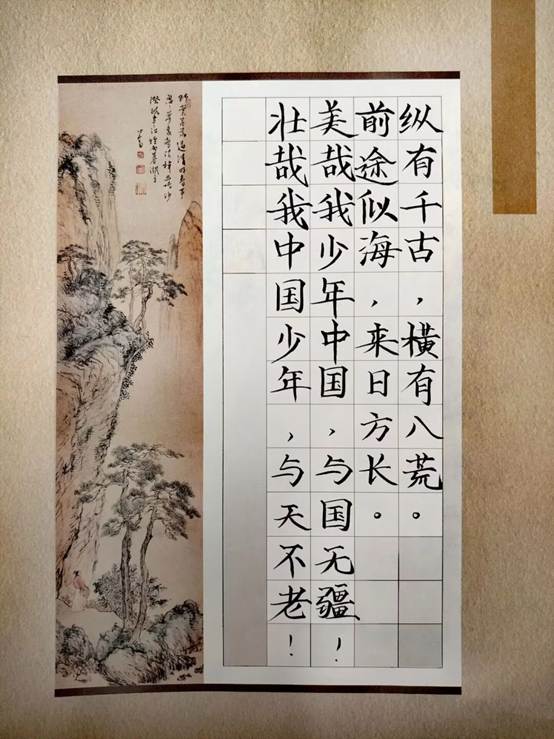 纵有千古，横有八荒。
前途似海，来日方长。
美哉我少年中国，与国无疆！
壮哉我中国少年，与天不老！